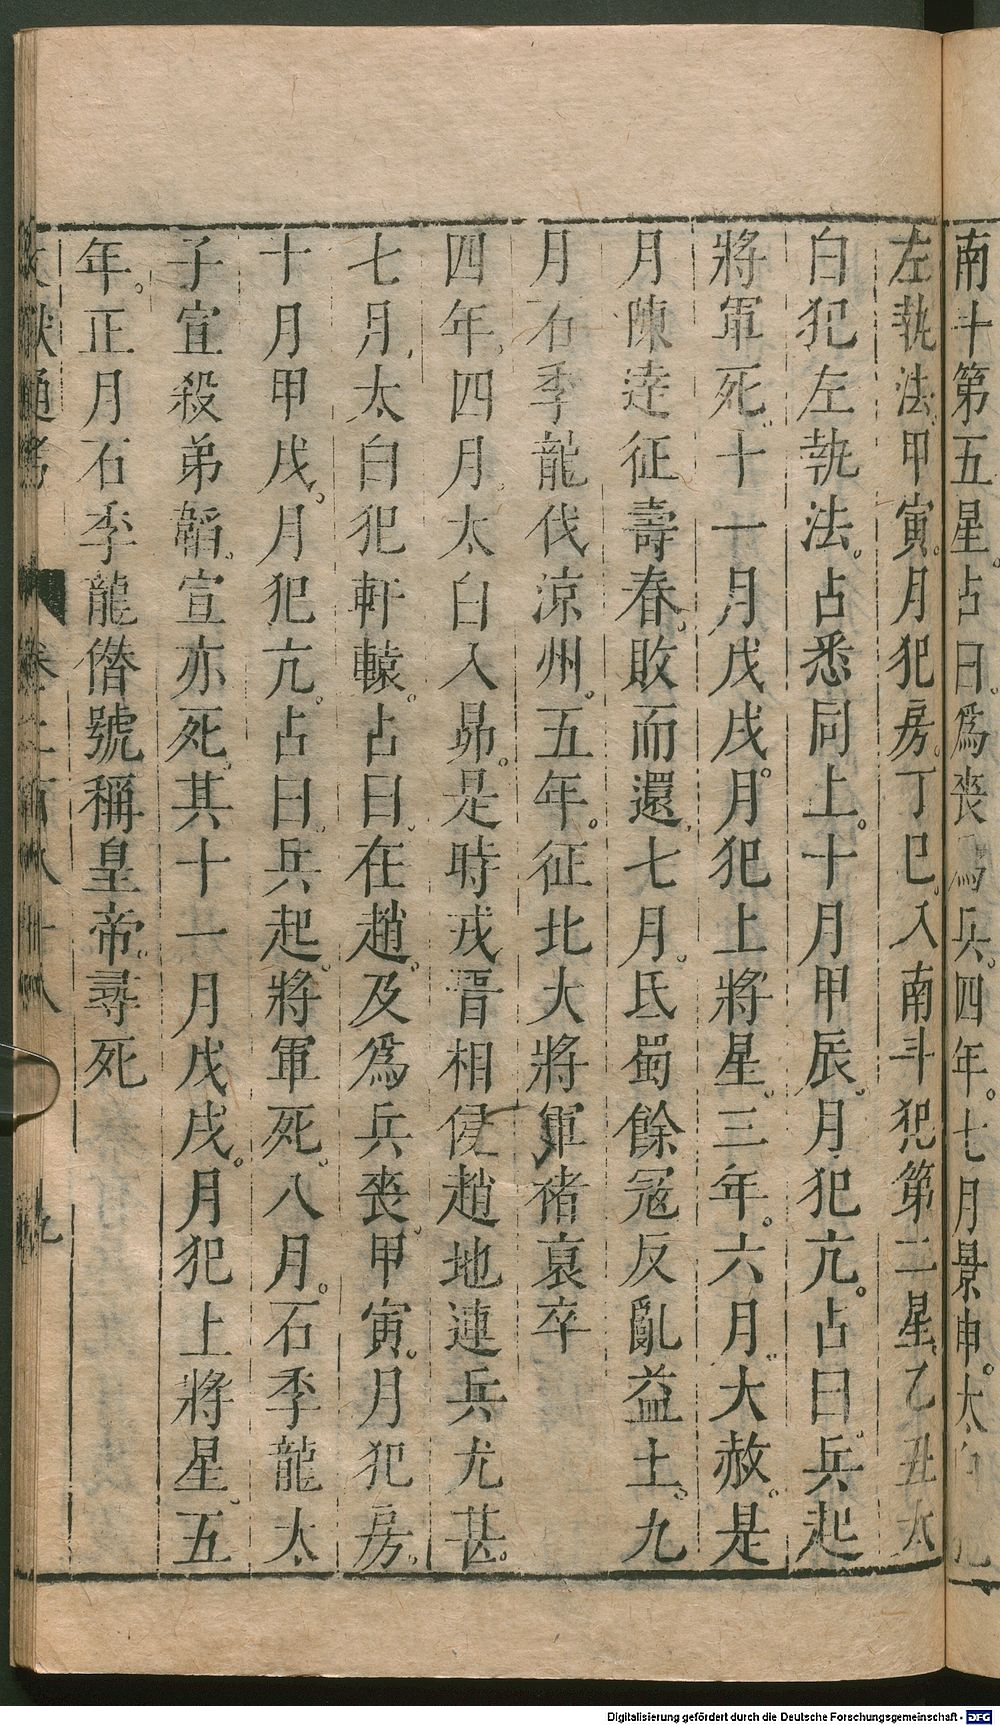 南斗第五星。占曰。爲喪爲兵。四年。七月景申。太白犯
左執法。甲寅。月犯房。丁巳。入南斗犯第二星。乙丑太
白犯左執法。占悉同上。十月甲辰。月犯亢。占曰。兵起
將軍死。十一月戊戌。月犯上將星。三年。六月。大赦。是
月陳逵征壽春。敗而還。七月。氐蜀餘寇反亂益土。九
月石季龍伐涼州。五年。征北大將軍褚裒卒
四年。四月。太白入昴。是時戎晉相侵趙地連兵尤甚。
七月。太白犯軒轅。占曰。在趙。及爲兵喪。甲寅。月犯房。
十月甲戌。月犯亢。占曰。兵起。將軍死。八月。石季龍太
子宣殺弟韜。宣亦死。其十一月戊戌。月犯上將星。五
年。正月石季龍僭號稱皇帝。尋死
文獻通考 卷二百八十八 九
Digitalisierung gefördert durch die Deutsche Forschungsgemeinschaft - DFG